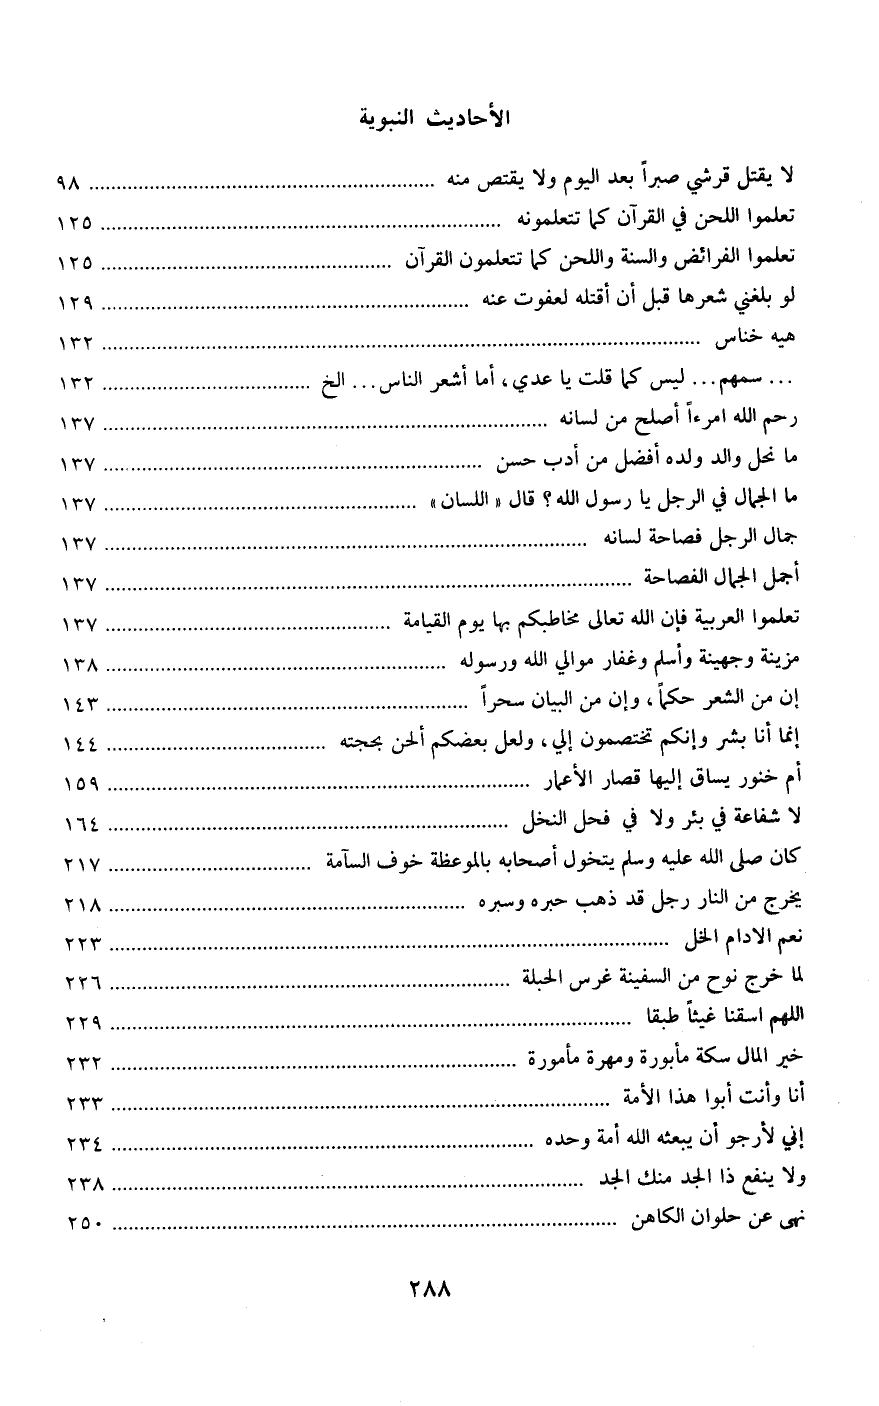 الأحاديث النبوية
لا يقتل قرشي صبراً بعد اليوم ولا يقتص منه ........ ٩٨
تعلموا اللحن في القرآن كما تتعلمونه ........ ١٢٥
تعلموا الفرائض والسنة واللحن كما تتعلمون القرآن ........ ١٢٥
لو بلغني شعرها قبل أن أقتله لعفوت عنه ........ ١٢٩
هيه خناس ........ ١٣٢
... سمهم... ليس كما قلت يا عدي، أما أشعر الناس... الخ ........ ١٣٢
رحم الله امرءاً أصلح من لسانه ........ ١٣٧
ما نحل والد ولده أفضل من أدب حسن ........ ١٣٧
ما الجمال في الرجل يا رسول الله؟ قال «اللسان» ........ ١٣٧
جمال الرجل فصاحة لسانه ........ ١٣٧
أجمل الجمال الفصاحة ........ ١٣٧
تعلموا العربية فإن الله تعالى مخاطبكم بها يوم القيامة ........ ١٣٧
مزينة وجهينة وأسلم وغفار موالي الله ورسوله ........ ١٣٨
إن من الشعر حكماً، وإن من البيان سحراً ........ ١٤٣
إنما أنا بشر وإنكم تختصمون إلي، ولعل بعضكم ألحن بحجته ........ ١٤٤
أم خنور يساق إليها قصار الأعمار ........ ١٥٩
لا شفاعة في بئر ولا في فحل النخل ........ ١٦٤
كان صلى الله عليه وسلم يتخول أصحابه بالموعظة خوف السآمة ........ ٢١٧
يخرج من النار رجل قد ذهب حبره وسبره ........ ٢١٨
نعم الادام الخل ........ ٢٢٣
لما خرج نوح من السفينة غرس الحبلة ........ ٢٢٦
اللهم اسقنا غيثاً طبقا ........ ٢٢٩
خير المال سكة مأبورة ومهرة مأمورة ........ ٢٣٢
أنا وأنت أبوا هذا الأمة ........ ٢٣٣
إني لأرجو أن يبعثه الله أمة وحده ........ ٢٣٤
ولا ينفع ذا الجد منك الجد ........ ٢٣٨
نهى عن حلوان الكاهن ........ ٢٥٠
٢٨٨